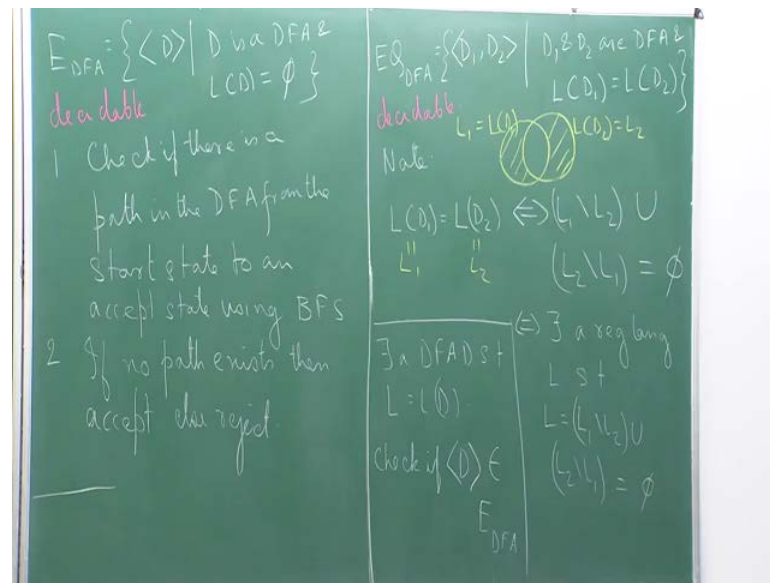 E_DFA = {⟨D⟩ | D is a DFA &
L(D) = ϕ }
decidable
1 Check if there is a
path in the DFA from the
start state to an
accept state using BFS
2 If no path exists then
accept else reject.
EQ_DFA = {⟨D₁, D₂⟩ | D₁ & D₂ are DFA &
L(D₁) = L(D₂)}
decidable
L₁ = L(D₁) L(D₂) = L₂
Note:
L(D₁) = L(D₂) ⟺ (L₁ \ L₂) ∪
(L₂ \ L₁) = ϕ
L₁ L₂
⟺ ∃ a reg lang
L st
L = (L₁ \ L₂) ∪
(L₂ \ L₁) = ϕ
∃ a DFA D st
L = L(D).
Check if ⟨D⟩ ∈
E_DFA